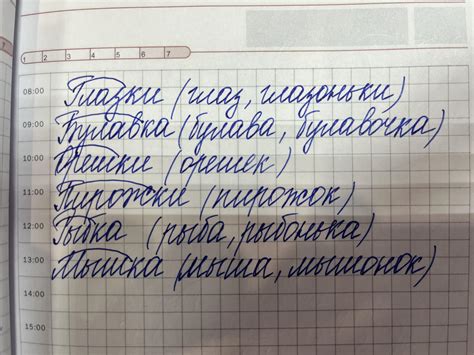 1 2 3 4 5 6 7
08:00 Глазки (глаз, глазоньки)
09:00 Булавка (булава, булавочка)
10:00 Орешки (орешек)
11:00 Пирожки (пирожок)
12:00 Рыбка (рыба, рыбонька)
13:00 Мышка (мыша, мышонок)
14:00
15:00